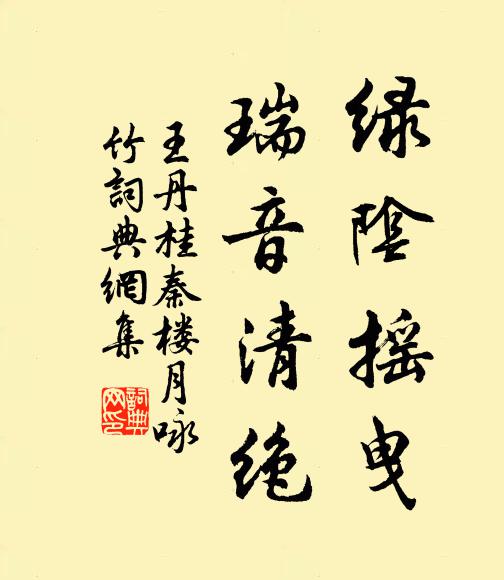 绿阴摇曳
瑞音清绝
王丹桂秦楼月咏
竹词典网集
詞典
网印